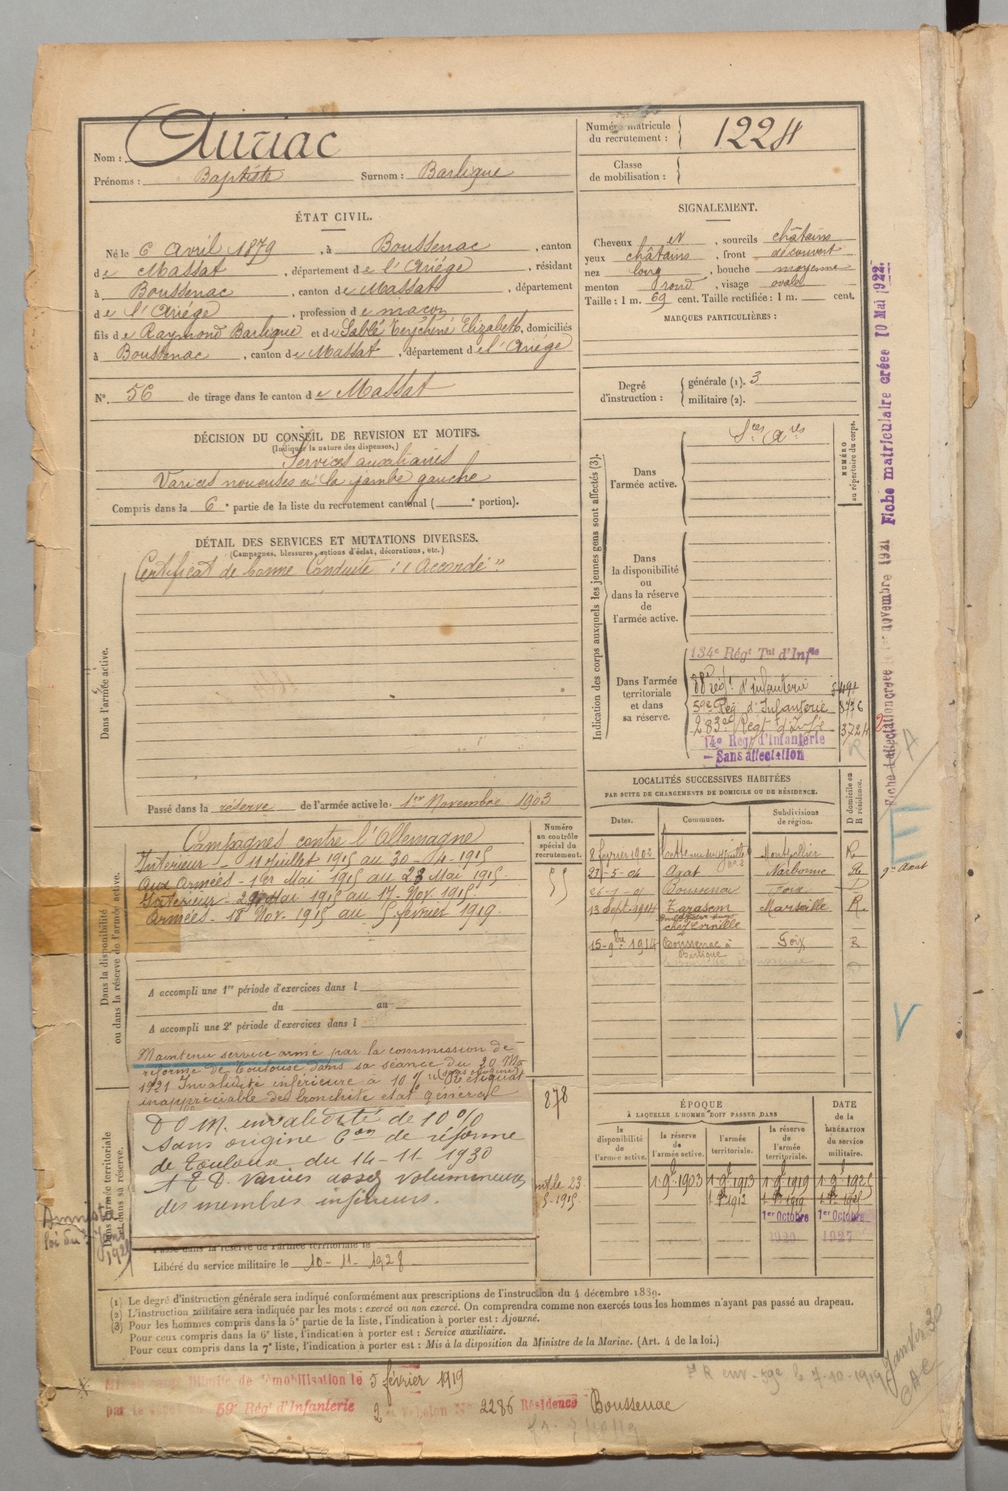 Nom : Auriac
Prénoms : Baptiste Surnom : Barlegue
Numéro matricule du recrutement : 1224
Classe de mobilisation :
ÉTAT CIVIL.
Né le 6 Avril 1879, à Boussenac, canton
de Massat, département de l'Ariège, résidant
à Boussenac, canton de Massat, département
de l'Ariège, profession de maçon
fils de Raymond Barlegue et de Sablé Elizabeth, domiciliés
à Boussenac, canton de Massat, département de l'Ariège
N° 56 de tirage dans le canton de Massat
SIGNALEMENT.
Cheveux et, sourcils châtains
yeux châtains, front découvert
nez long, bouche moyenne
menton rond, visage ovale
Taille : 1 m. 69 cent. Taille rectifiée : 1 m. cent.
MARQUES PARTICULIÈRES :
Degré d'instruction : générale (1). 3
militaire (2).
DÉCISION DU CONSEIL DE REVISION ET MOTIFS.
(Indiquer la nature des dispenses.)
Services auxiliaires
Varices noueuses à la jambe gauche
Compris dans la 6e partie de la liste du recrutement cantonal ( e portion).
DÉTAIL DES SERVICES ET MUTATIONS DIVERSES.
(Campagnes, blessures, actions d'éclat, décorations, etc.)
Dans l'armée active.
Certificat de bonne Conduite : "Accordé"
Passé dans la réserve de l'armée active le 1er Novembre 1903
Indication des corps auxquels les jeunes gens sont affectés (3).
NUMÉRO au répertoire du corps.
Dans l'armée active.
Sces Ares
Dans la disponibilité ou dans la réserve de l'armée active.
Dans l'armée territoriale et dans sa réserve.
134e Régt Tal d'Infie
88e régt d'infanterie
59e Rég. d'Infanterie 8736
283e Régt d'Infie 3724
14e Régt d'Infanterie
— Sans affectation
Fiche matriculaire créée 10 Mai 1922.
novembre 1921
LOCALITÉS SUCCESSIVES HABITÉES
PAR SUITE DE CHANGEMENTS DE DOMICILE OU DE RÉSIDENCE.
D domicile ou R résidence.
Dates. Communes. Subdivisions de région.
8 février 1902 Montpellier R
27-5-04 Agat Narbonne R
Boussenac Foix D
13 Sept 1914 Tarascon Marseille R
15-9bre 1914 Boussenac à Barlegue Foix R
Dans la disponibilité ou dans la réserve de l'armée active.
Numéro au contrôle spécial du recrutement.
55
Campagnes contre l'Allemagne
Intérieur - 11 Juillet 1915 au 30-4-1915
Aux Armées - 1er Mai 1915 au 23 Mai 1915.
Intérieur - 24 Mai 1915 au 17 Nov 1915
Armées - 18 Nov. 1915 au 5 février 1919.
A accompli une 1re période d'exercices dans l
du au
A accompli une 2e période d'exercices dans l
Maintenu service armé par la commission de
réforme de Toulouse dans sa séance du 20 Mai
1921 Invalidité inférieure à 10%
inappréciable des bronchite état général
878
D.O.M. invalidité de 10%
sans origine Con de réforme
de Toulouse du 14-11-1930
1 E D. Varices assez volumineuses
des membres inférieurs.
Dans l'armée territoriale et dans sa réserve.
Passé dans la réserve de l'armée territoriale le
Libéré du service militaire le 10-11-1928
Amnistié
loi du
ÉPOQUE
À LAQUELLE L'HOMME DOIT PASSER DANS
la disponibilité de l'armée active. la réserve de l'armée active. l'armée territoriale. la réserve de l'armée territoriale.
DATE de la LIBÉRATION du service militaire.
1-9-1903 1-9-1913 1-9-1919 1-9-1925
1er Octobre 1920 1er Octobre 1927
(1) Le degré d'instruction générale sera indiqué conformément aux prescriptions de l'instruction du 4 décembre 1889.
(2) L'instruction militaire sera indiquée par les mots : exercé ou non exercé. On comprendra comme non exercés tous les hommes n'ayant pas passé au drapeau.
(3) Pour les hommes compris dans la 5e partie de la liste, l'indication à porter est : Ajourné.
Pour ceux compris dans la 6e liste, l'indication à porter est : Service auxiliaire.
Pour ceux compris dans la 7e liste, l'indication à porter est : Mis à la disposition du Ministre de la Marine. (Art. 4 de la loi.)
Mis en congé illimité de démobilisation le 5 février 1919
par le 59e Rég. d'Infanterie 2e échelon N° 2286 Résidence Boussenac